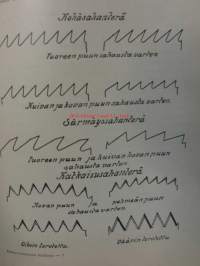 Kehäsahanterä
Tuoreen puun sahausta varten
Kuivan ja kovan puun sahausta varten.
Särmäyssahanterä
Tuoreen puun ja kuivan kovan puun
sahausta varten
Katkaisusahanterä
Kovan puun ja pehmeän puun
sahausta varten.
Oikein teroitettu. Väärin teroitettu.